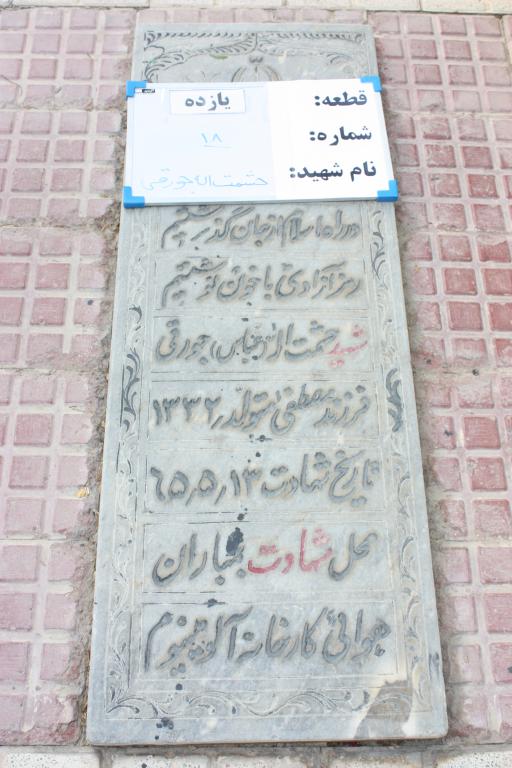 الله
قطعه: یازده
شماره: ۱۸
نام شهید: حشمت اله جورقی
در راه اسلام از جان گذشتیم
رمز آزادی با خون نوشتیم
شهید حشمت اله (عباس) جورقی
فرزند مصطفی متولد ۱۳۳۲
تاریخ شهادت ۶۵٫۵٫۱۳
محل شهادت بمباران
هوائی کارخانه آلومینیوم